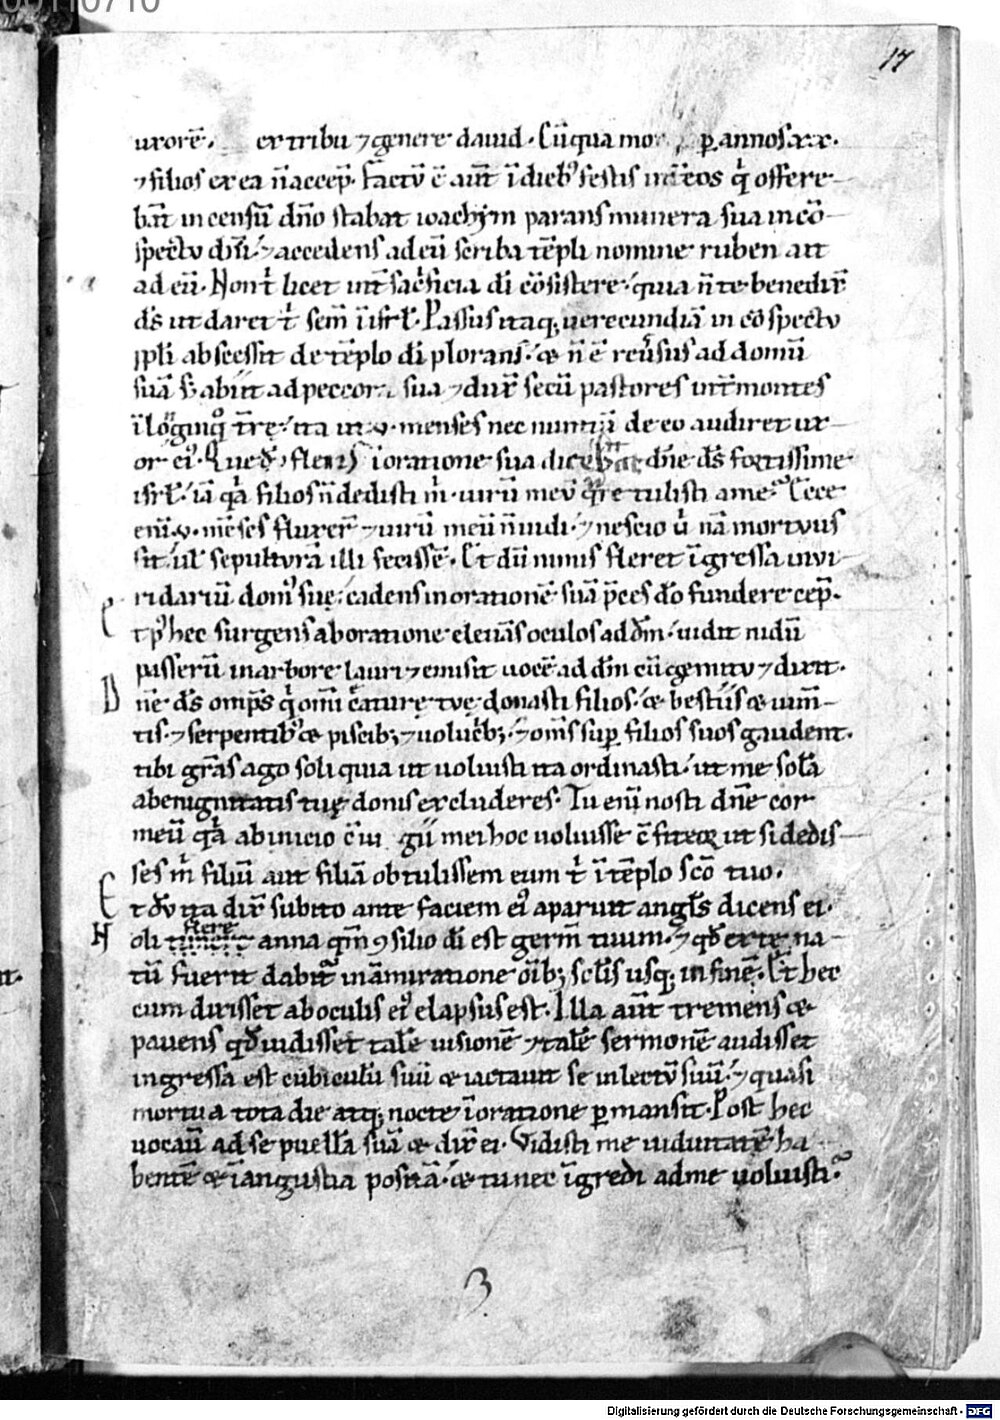 00110710
17
uxorē. ex tribu ⁊ genere dauid. Cū qua mo p annos xx.
⁊ filios ex ea n̄ accep̄. Factū ē aūt ī dieb; festis int̄ eos qͥ offere-
bāt incensū dn̄o stabat ioachym parans munera sua in cō-
spectu dn̄i. ⁊ accedens ad eū scriba tēpli nomine ruben ait
ad eū. Non tͥ licet int̄ sacͥficia dī cōsistere. quia n̄ te benedix̄
ds̄ ut daret tͥ sem̄ ī isrl̄. Passus itaq; uerecundiā in cōspectu
ppli abscessit de tēplo dī plorans. ⁊ n̄ ē reuͥsus ad domū
suā sꝫ abiit ad peccora sua ⁊ dux̄ secū pastores int̄ montes
ī lōginqͣ tr̄ę. ita ut .v. menses nec nuntiū de eo audiret ux-
or eiꝰ. Quę dū fleret ī oratione sua diceret dn̄e ds̄ fortissime
isrl̄. iā qͣ filios n̄ dedisti mͥ. uirū meū qͣre tulisti a me. Ecce
enī .v. mēses fluxer̄ ⁊ uirū meū n̄ uidi. ⁊ nescio uͥ nā mortuus
sit. ul̄ sepulturā illi fecissē. Et dū nimis fleret īgressa in vi-
ridariū domꝰ suę. cadens in orationē suā p̄ces dn̄o fundere cep̄.
Et pꝰ hec surgens ab oratione eleuās oculos ad dn̄m. uidit nidū
passerū in arbore lauri ⁊ emisit uocē ad dn̄m cū gemitu ⁊ dixit.
Dn̄e ds̄ omp̄s qͥ omī creaturę tuę donasti filios. ⁊ bestiis ⁊ ium̄-
tis. ⁊ serpentibꝰ ⁊ piscib; ⁊ uolucͥb; ⁊ om̄s sup filios suos gaudent.
tibi grās ago soli quia ut uoluisti ita ordinasti. ut me solā
a benignitatis tuę donis excluderes. Tu enī nosti dn̄e cor
meū qͣ ab inicio ciu gii mei hoc uoluisse c̄fiteor ut si dedis-
ses mͥ filiū aut filiā obtulissem eum tͥ ī tēplo scō tuo.
Et dū ita dix̄ subito ante faciem eiꝰ aparuit angls̄ dicens ei.
flere
Noli timere anna qm̄ ꝯsilio dī est germ̄ tuum. ⁊ qd̄ ex te na-
tū fuerit dabit̄ in āmiratione oīb; sclīs usq; in finē. Et hec
cum dixisset ab oculis eiꝰ elapsus est. Illa aūt tremens ⁊
pauens qd̄ uidisset talē uisionē ⁊ talē sermonē audisset
ingressa est cubiculū suū ⁊ iactauit se in lectū suū. ⁊ quasi
mortua tota die atq; nocte ī oratione pmansit. Post hec
uocauͥ ad se puellā suā ⁊ dix̄ ei. Vidisti me uiduitatē ha
bentē ⁊ ī angustia positā. ⁊ tu nec īgredi ad me uoluisti.
3
Digitalisierung gefördert durch die Deutsche Forschungsgemeinschaft - DFG